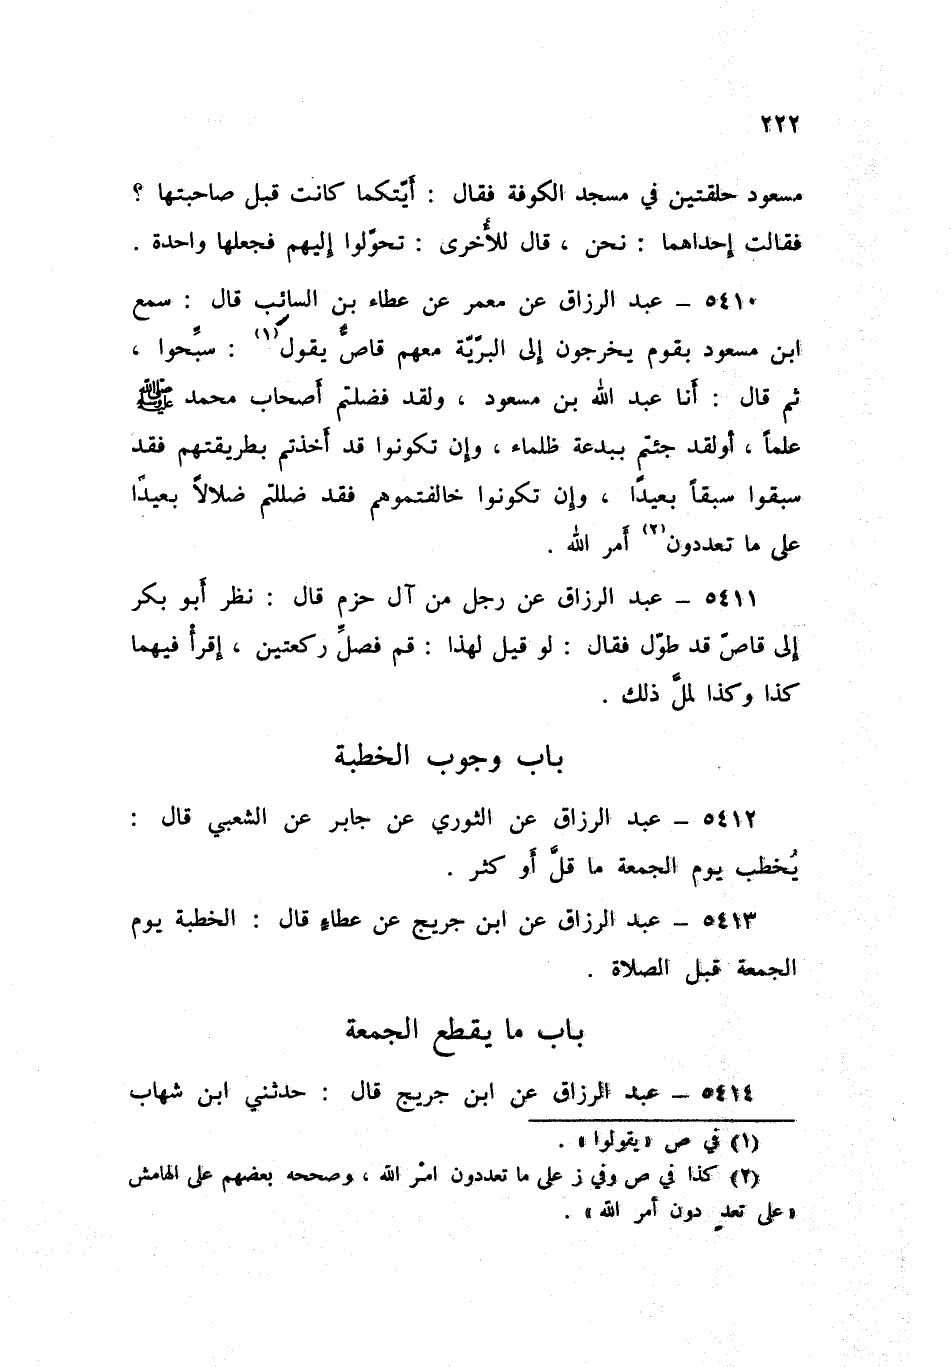 ٢٢٢
مسعود حلقتين في مسجد الكوفة فقال : أَيّتكما كانت قبل صاحبتها ؟
فقالت إحداهما : نحن ، قال للأُخرى : تحوّلوا إليهم فجعلها واحدة .
٥٤١٠ – عبد الرزاق عن معمر عن عطاء بن السائب قال : سمع
ابن مسعود بقوم يخرجون إلى البرّيّة معهم قاصٌّ يقول(١) : سبِّحوا ،
ثم قال : أَنا عبد الله بن مسعود ، ولقد فضلتم أَصحاب محمد ﷺ
علماً ، أَولقد جئتم ببدعة ظلماء ، وإن تكونوا قد أَخذتم بطريقتهم فقد
سبقوا سبقاً بعيدًا ، وإن تكونوا خالفتموهم فقد ضللتم ضلالاً بعيدًا
على ما تعددون(٢) أَمر الله .
٥٤١١ – عبد الرزاق عن رجل من آل حزم قال : نظر أَبو بكر
إلى قاصّ قد طوّل فقال : لو قيل لهذا : قم فصلِّ ركعتين ، إقرأْ فيهما
كذا وكذا لملَّ ذلك .
باب وجوب الخطبة
٥٤١٢ – عبد الرزاق عن الثوري عن جابر عن الشعبي قال :
يُخطب يوم الجمعة ما قلَّ أَو كثر .
٥٤١٣ – عبد الرزاق عن ابن جريج عن عطاءٍ قال : الخطبة يوم
الجمعة قبل الصلاة .
باب ما يقطع الجمعة
٥٤١٤ – عبد الرزاق عن ابن جريج قال : حدثني ابن شهاب
(١) في ص «يقولوا» .
(٢) كذا في ص وفي ز على ما تعددون امْر الله ، وصححه بعضهم على الهامش
«على تعدٍ دون أمر الله» .